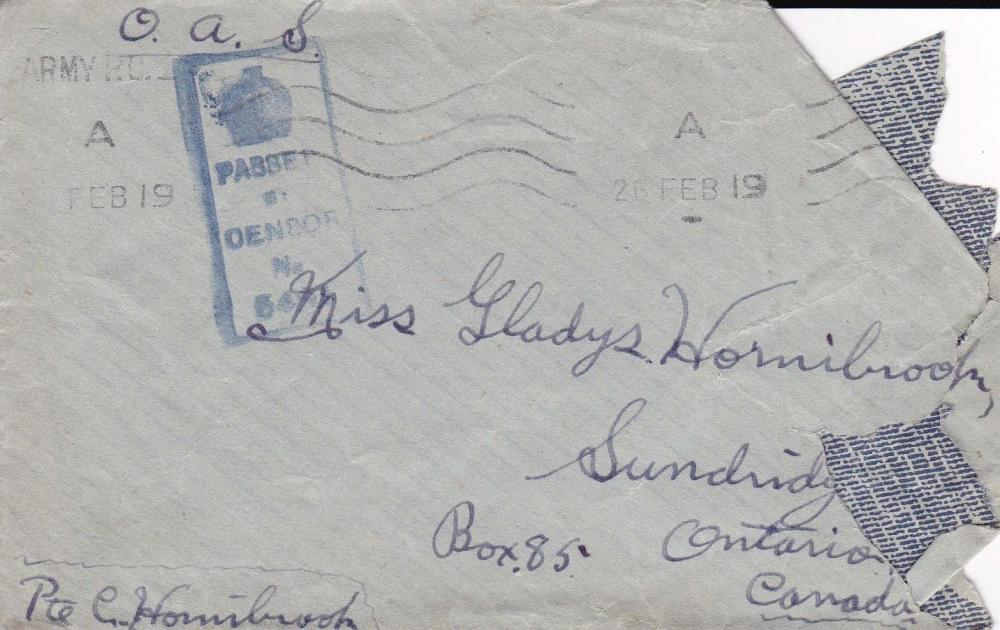 O. A. S.
ARMY P.O.
A
A
FEB 19
26 FEB 19
PASSE
BY
CENSOR
No
Miss Gladys Hornibrook,
Sundridg
Box.85. Ontario
Canada
Pte C. Hornibrook